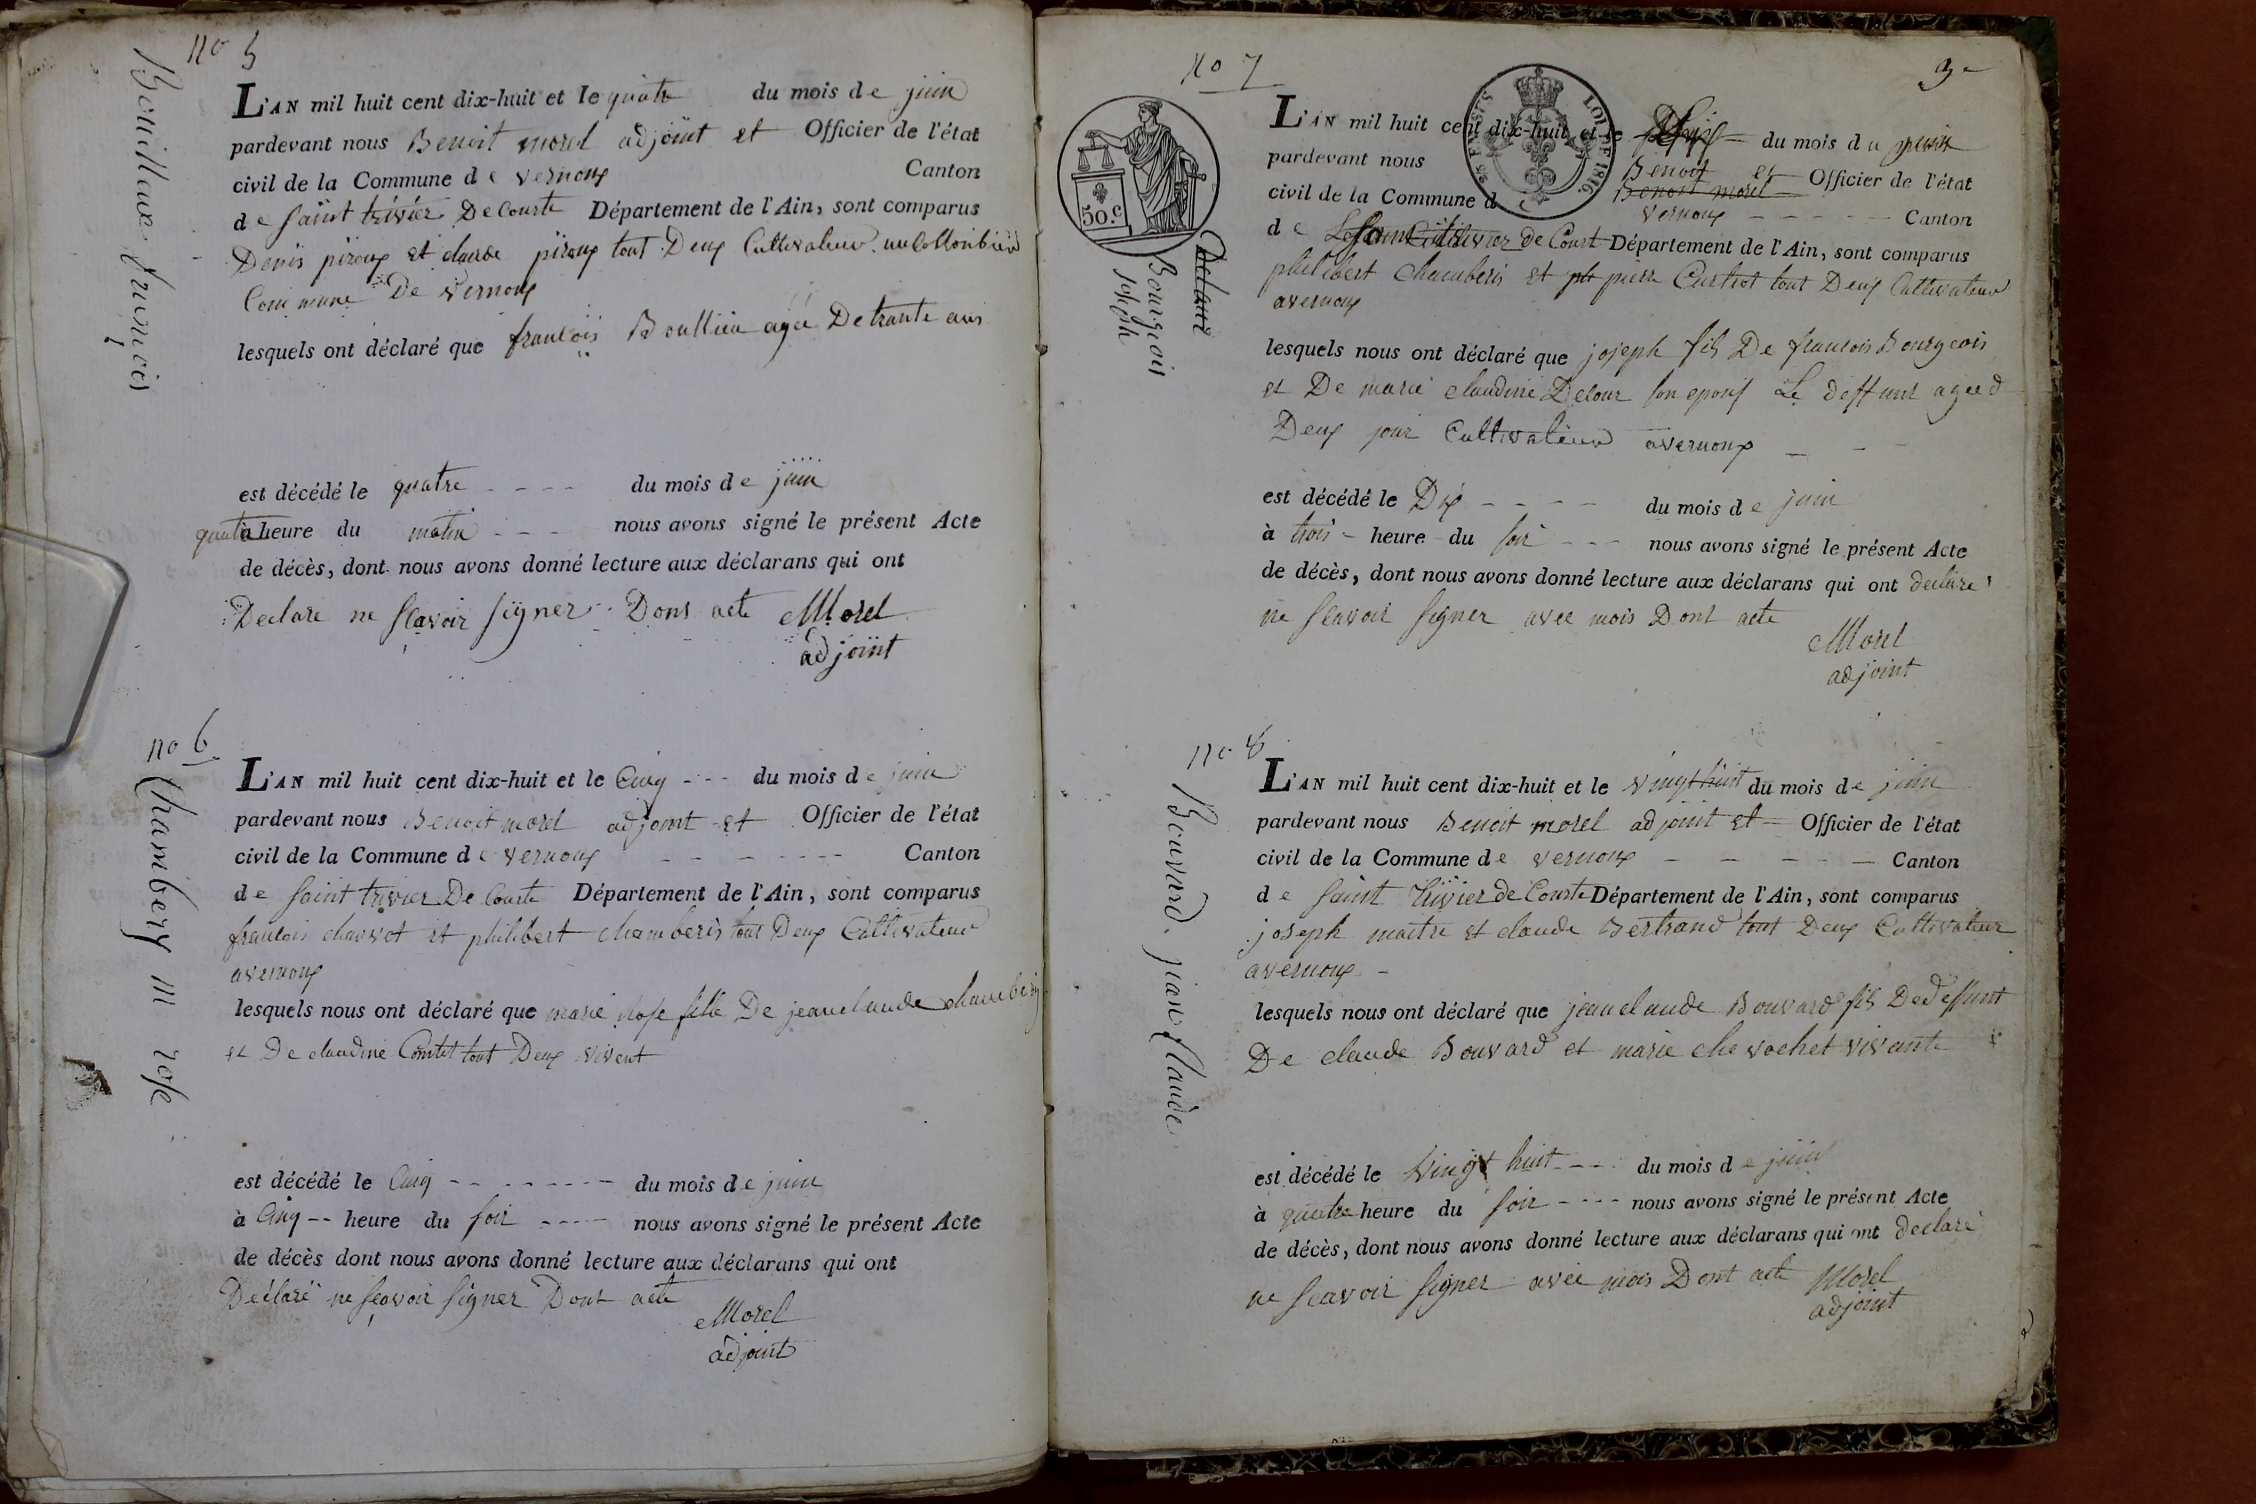 no 5
Bouillaux francois
L'AN mil huit cent dix-huit et le quatre du mois de juin
pardevant nous Benoit morel adjoint et Officier de l'état
civil de la Commune de vernoux Canton
de saint trivier De Courte Département de l'Ain, sont comparus
Denis piroux et claude piroux tout Deux Cultivateur
Commune De vernoux
lesquels ont déclaré que francois Boullien agée De trante ans
est décédé le quatre du mois de juin
quatre à heure du matin nous avons signé le présent Acte
de décès, dont nous avons donné lecture aux déclarans qui ont
Declare ne scavoir signer Dont acte Morel
adjoint
no 6
Chambery M rose
L'AN mil huit cent dix-huit et le Cinq du mois de juin
pardevant nous Benoit morel adjoint et Officier de l'état
civil de la Commune de vernoux Canton
de saint trivier De Courte Département de l'Ain, sont comparus
francois chauvet et philibert chamberis tout Deux Cultivateur
avernoux
lesquels nous ont déclaré que marie rose fille De jeanclaude
et De claudine Contet tout Deux vivent
est décédé le Cinq du mois de juin
à Cinq heure du soir nous avons signé le présent Acte
de décès dont nous avons donné lecture aux déclarans qui ont
Declaré ne scavoir signer Dont acte
Morel
adjoint
no 7
3e
50.c
LOI DE 1816.
Declaré
Bourgeois
Joseph
L'AN mil huit cent dix-huit et le Dix du mois du juin
pardevant nous Benoit et Officier de l'état
Benoit morel
civil de la Commune d vernoux Canton
de saint trivier de Court Département de l'Ain, sont comparus
philibert chamberis et pierre Curtiot tout Deux Cultivateur
avernoux
lesquels nous ont déclaré que joseph fils De francois Bourgeois
et De marie claudine Delour son epous Le deffunt agee d
Deux jour Cultivateur avernoux
est décédé le Dix du mois de juin
à trois heure du soir nous avons signé le présent Acte
de décès, dont nous avons donné lecture aux déclarans qui ont declare
ne scavoir signer avec mois Dont acte
Morel
adjoint
no 8
Bouvard jean Claude
L'AN mil huit cent dix-huit et le vingt huit du mois de juin
pardevant nous Benoit morel adjoint et Officier de l'état
civil de la Commune de vernoux Canton
de saint trivier de Courte Département de l'Ain, sont comparus
joseph maitre et claude Bertrand tout Deux Cultivateur
avernoux
lesquels nous ont déclaré que jeanclaude Bouvard fils Dedeffunt
De claude Bouvard et marie chevochet vivante
est décédé le vingt huit du mois de juin
à quatre heure du soir nous avons signé le présent Acte
de décès, dont nous avons donné lecture aux déclarans qui ont declaré
ne scavoir signer avec mois Dont acte Morel
adjoint